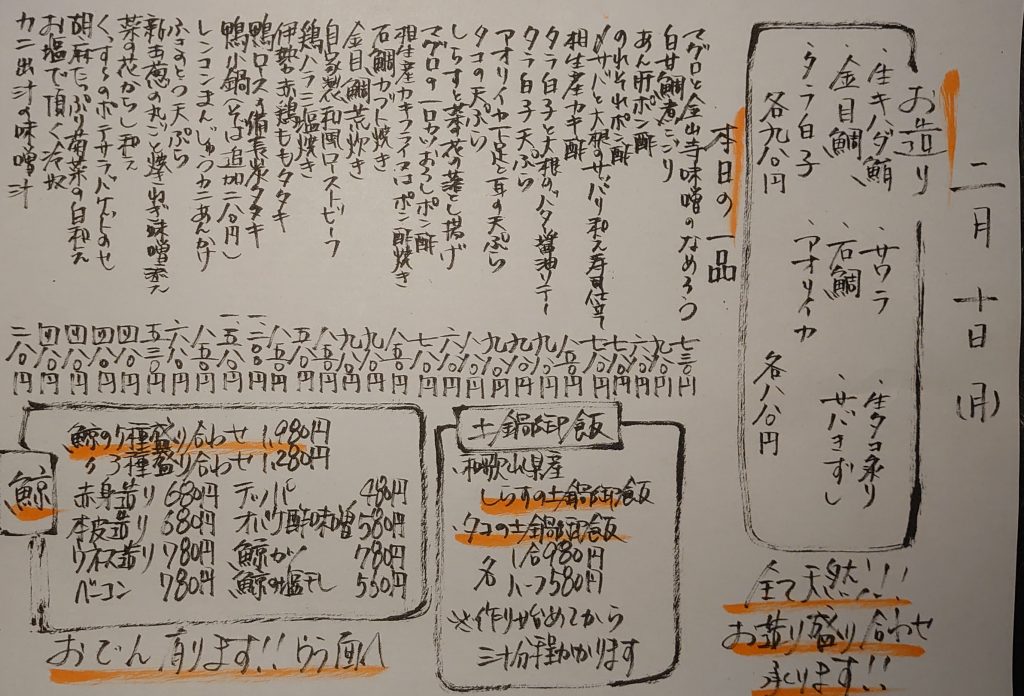 二月十日(月)
お造り
・生キハダ鮪
・金目鯛
・タラ白子
各九八〇円
・サワラ
・石鯛
・アオリイカ
・生タコ炙り
・サバきずし
各八八〇円
全て天然!!
お造り盛り合わせ
承ります!!
本日の一品
マグロと金山寺味噌のなめろう 七三〇円
白甘鯛煮こごり
あん肝ポン酢
のれそれポン酢
〆サバと大根のサッパリ和え寿司仕立て
相生産カキ酢
タラ白子と大根のバタ醤油ソテー
タラ白子天ぷら
アオリイカ下足と耳の天ぷら
タコの天ぷら
しらすと菜の花の落とし揚げ
マグロの一口カツおろしポン酢
相生産カキフライ又はポン酢焼き
石鯛カブト焼き
金目鯛荒炊き
自家製和風ローストビーフ
鶏ハラミ塩焼き
伊勢赤鶏ももタタキ
鴨ロース備長炭タタキ
鴨小鍋(そば追加二八〇円)
レンコンまんじゅうカニあんかけ
ふきのとう天ぷら
新玉葱の丸ごと焼きねぎ味噌添え 五三〇円
菜の花からし和え
くずきのポテサラバケットのせ
胡麻たっぷり菊菜の白和え
お塩で頂く冷奴
カニ出汁の味噌汁 二八〇円
土鍋御飯
・和歌山県産
しらすの土鍋御飯
・タコの土鍋御飯
各
1合980円
ハーフ580円
※作り始めてから
三十分程かかります
鯨
鯨の5種盛り合わせ 1,980円
〃3種盛り合わせ 1,280円
赤身造り 680円
本皮造り 680円
ウネス造り 780円
ベーコン 780円
テッパ 480円
オバケ酢味噌 580円
鯨カツ 780円
鯨の塩干し 550円
おでん有ります!!ウラ面へ